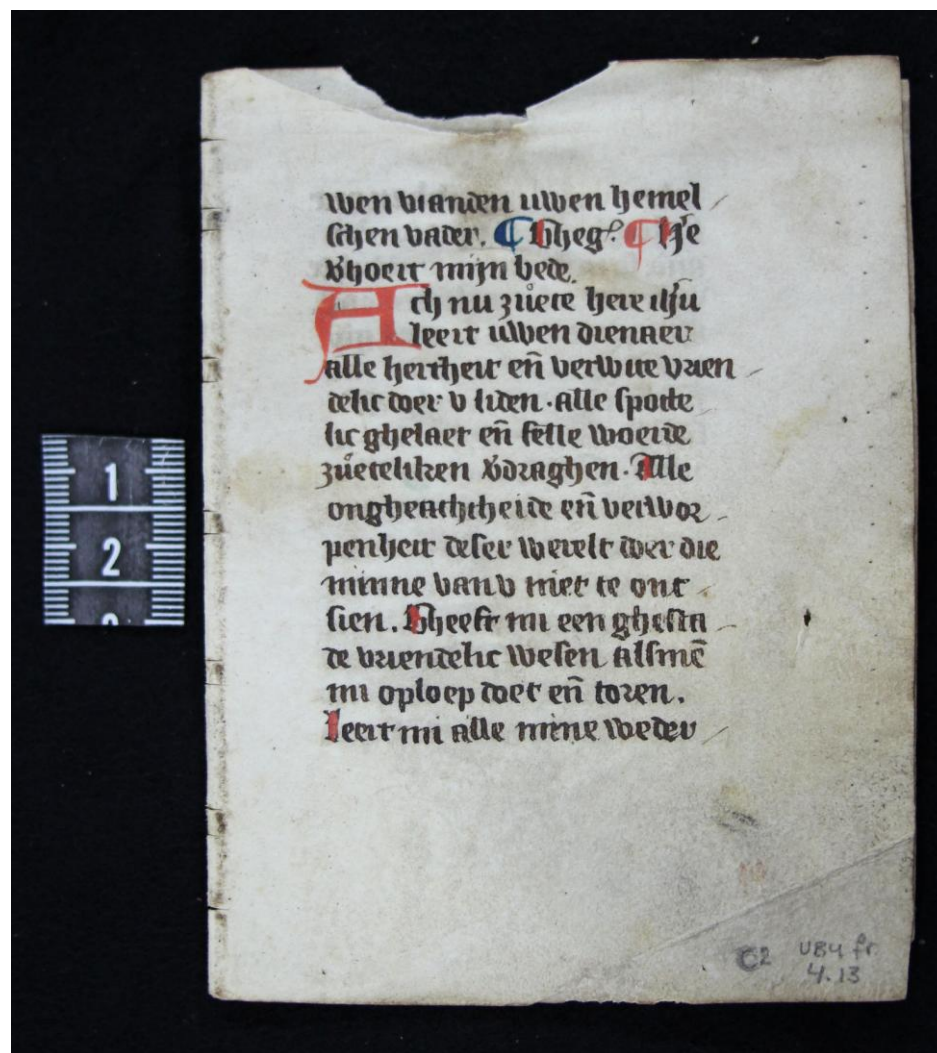 wen vianden uwen hemel
schen vader. ¶ Ghegͦ. ¶ He
vhoert mijn bede.
Ach nu zuͤete here ihu
leert uwen dienaer
alle hertheit en̄ verwite vrien
delic doer v liden. alle spotte
lic ghelaet en̄ felle woerde
zuͤeteliken vdraghen. Alle
ongheachtheide en̄ verwor
penheit deser werelt doer die
minne van v niet te ont
sien. Gheeft mi een ghesta
de vriendelic wesen alsmē
mi oploep doet en̄ toren.
leert mi alle mine weder
1
2
C2 UB4 fr
4.13